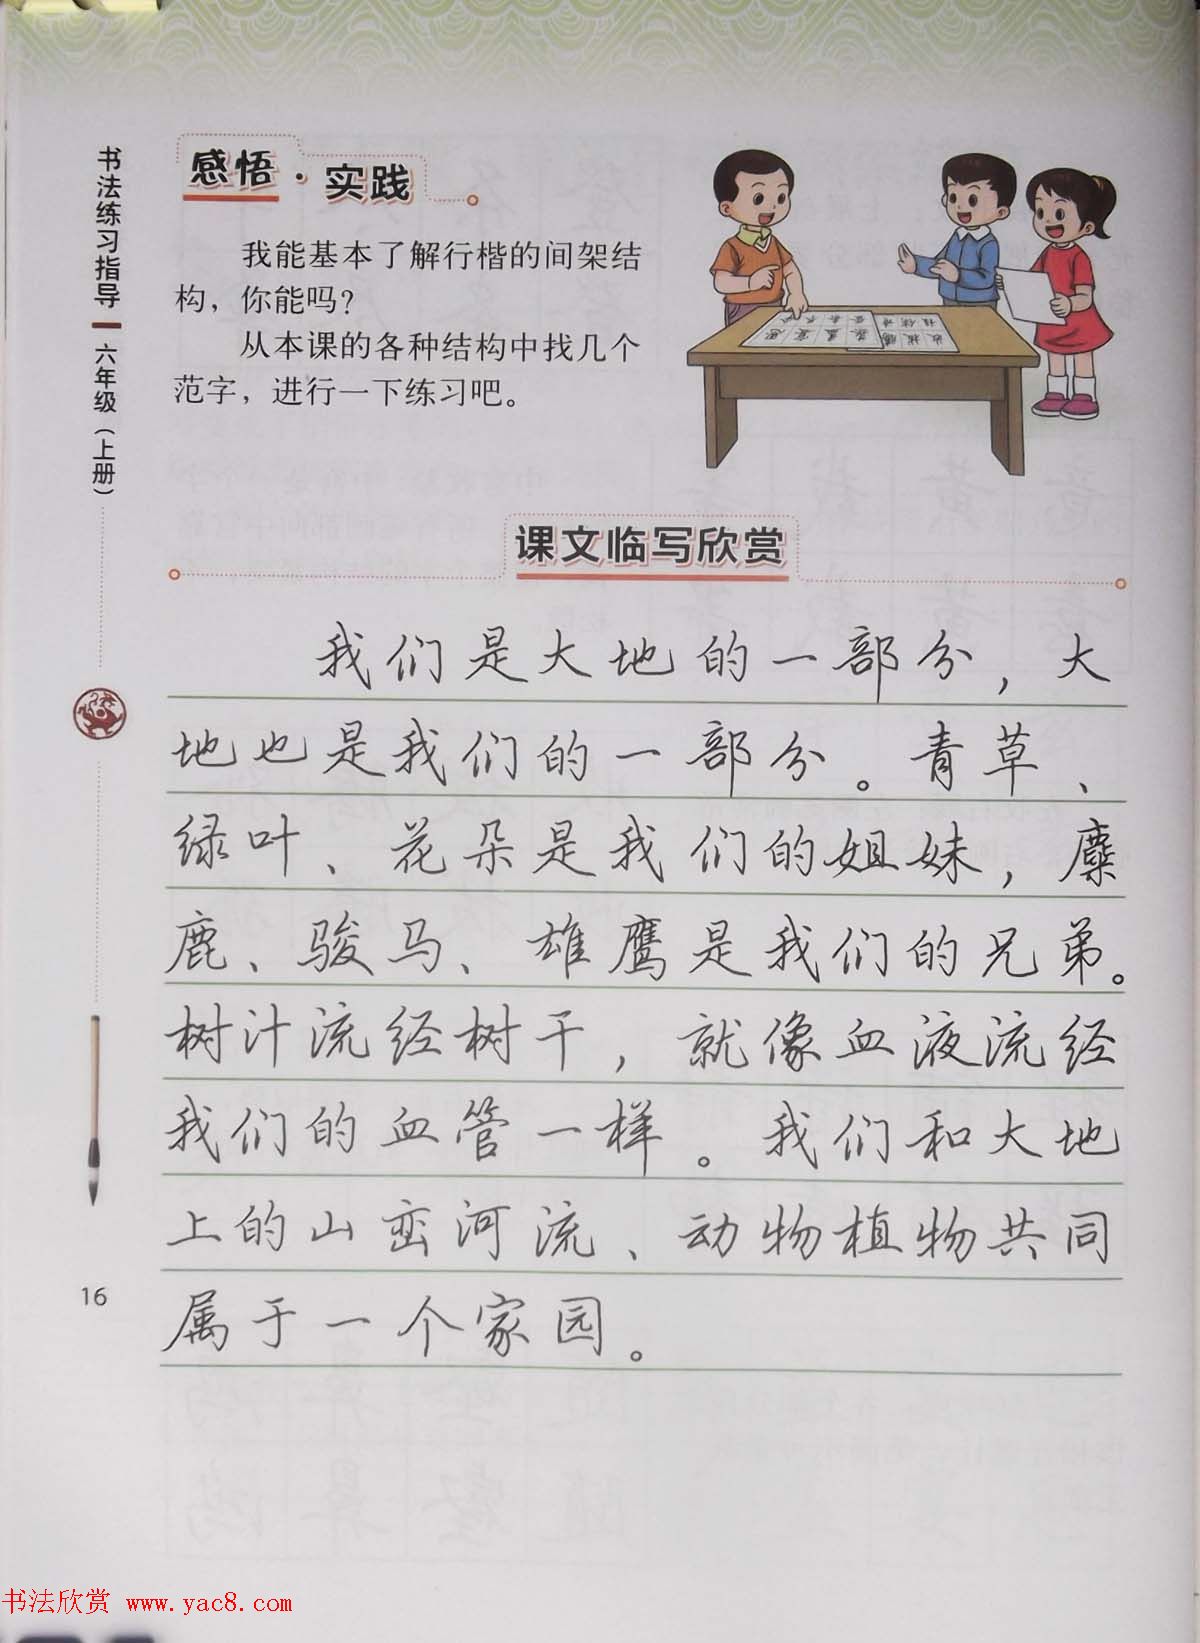 书法练习指导 六年级（上册）
感悟·实践
我能基本了解行楷的间架结
构，你能吗？
从本课的各种结构中找几个
范字，进行一下练习吧。
课文临写欣赏
我们是大地的一部分，大
地也是我们的一部分。青草、
绿叶、花朵是我们的姐妹，麋
鹿、骏马、雄鹰是我们的兄弟。
树汁流经树干，就像血液流经
我们的血管一样。我们和大地
上的山峦河流、动物植物共同
属于一个家园。
16
书法欣赏 www.yac8.com